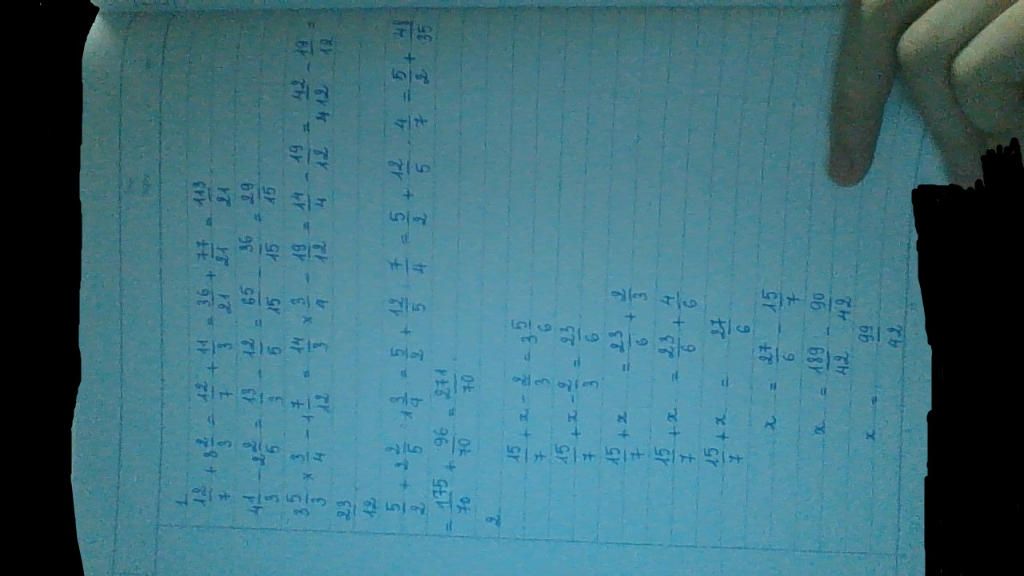 1.
12/7 + 3 2/3 = 12/7 + 11/3 = 36/21 + 77/21 = 113/21
4 1/3 - 2 2/5 = 13/3 - 12/5 = 65/15 - 36/15 = 29/15
3 5/3 x 3/4 - 1 7/12 = 14/3 x 3/4 - 19/12 = 14/4 - 19/12 = 42/12 - 19/12 =
23/12
5/2 + 2 2/5 : 1 3/4 = 5/2 + 12/5 : 7/4 = 5/2 + 12/5 . 4/7 = 5/2 + 48/35
= 175/70 + 96/70 = 271/70
2
15/7 + x - 2/3 = 3 5/6
15/7 + x - 2/3 = 23/6
15/7 + x = 23/6 + 2/3
15/7 + x = 23/6 + 4/6
15/7 + x = 27/6
x = 27/6 - 15/7
x = 189/42 - 90/42
x = 99/42